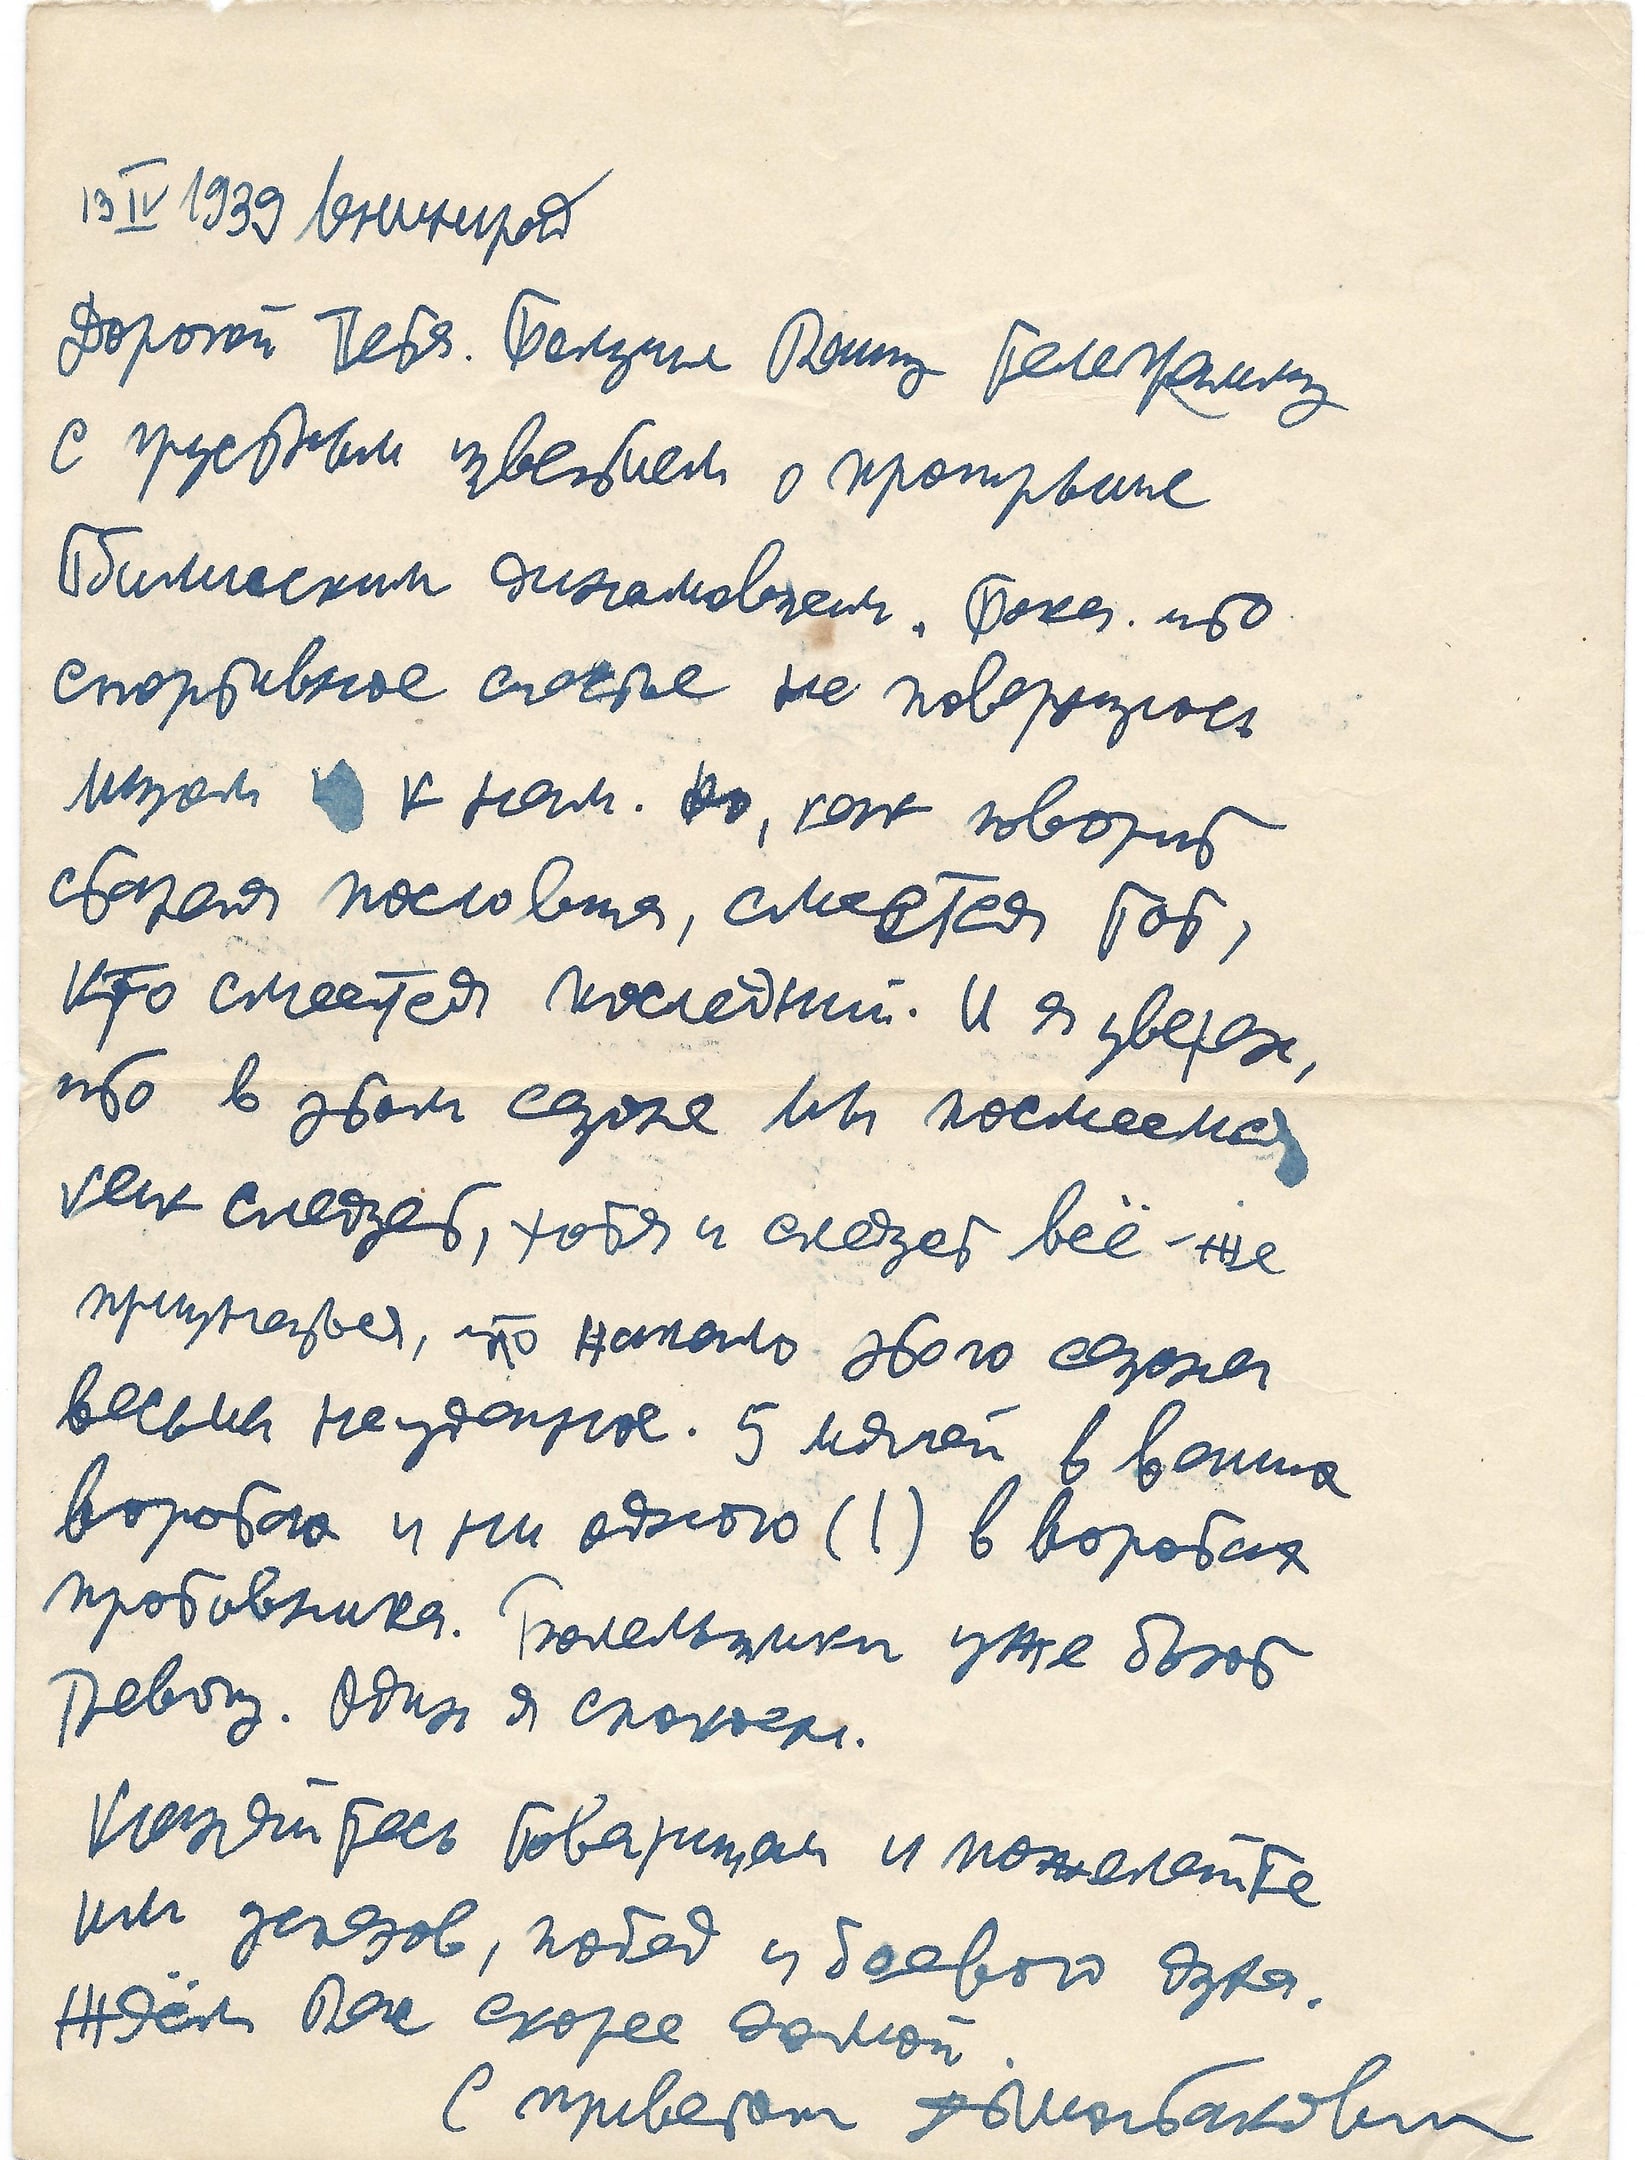 13 IV 1939 Ленинград
Дорогой Петя. Получил Вашу телеграмму
с грустным известием о проигрыше
Тбилисским динамовцам. Пока что
спортивное счастье не повернулось
лицом к нам. Но, как говорит
старая пословица, смеется тот,
кто смеется последний. И я уверен,
что в этом сезоне мы посмеемся
как следует, хотя и следует всё-же
признаться, что начало этого сезона
весьма неудачное. 5 мячей в ваших
воротах и ни одного (!) в воротах
противника. Болельщики уже бьют
тревогу. Один я спокоен.
Кланяйтесь товарищам и пожелайте
им успехов, побед и боевого духа.
Ждём Вас скорее домой.
С приветом Д Шостакович